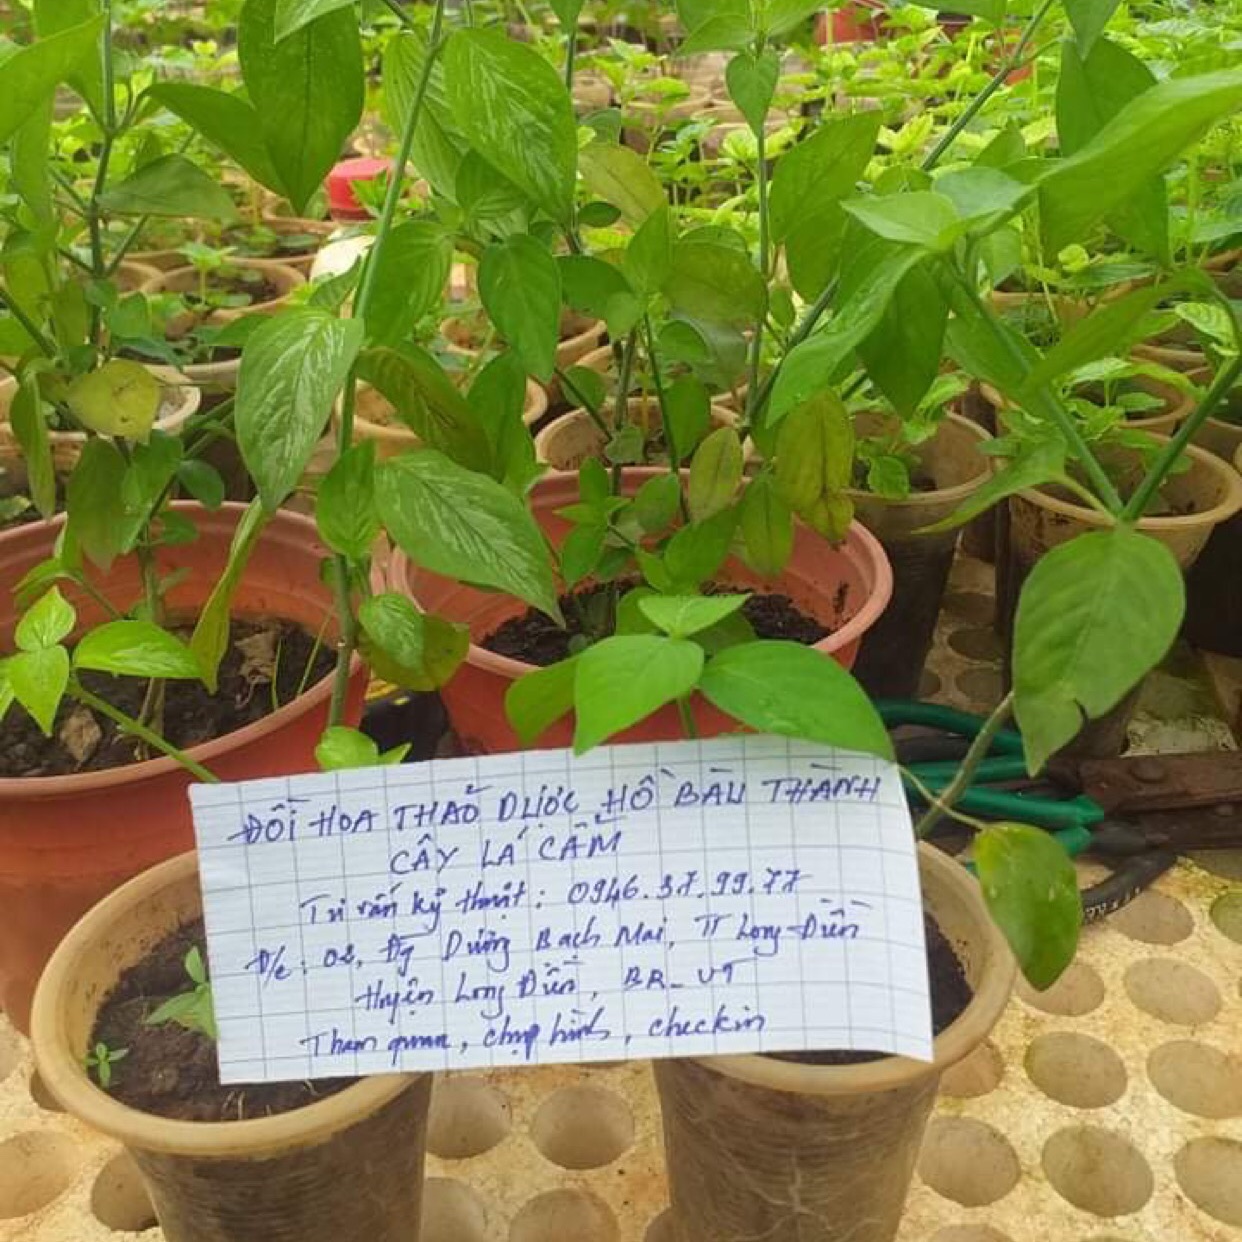 ĐỒI HOA THẢO DƯỢC HỒ BÀU THÀNH
CÂY LÁ CẨM
Tư vấn kỹ thuật: 0946.37.99.77
Đ/c: 02, Đg Dương Bạch Mai, TT Long Điền
Huyện Long Điền, BR-VT
Tham quan, chụp hình, checkin